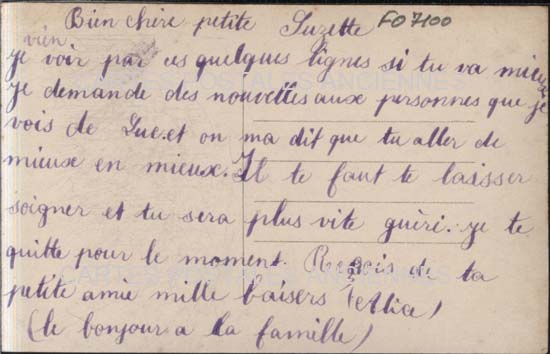 Bien chère petite Suzette FO7100
vien
Je voir par ces quelques lignes si tu va mieux
Je demande des nouvelles aux personnes que je
vois de Luc. et on ma dit que tu aller de
mieux en mieux. Il te faut te laisser
soigner et tu sera plus vite guèri. je te
quitte pour le moment. Reçois de ta
petite amie mille baisers (Alice)
(le bonjour a la famille)